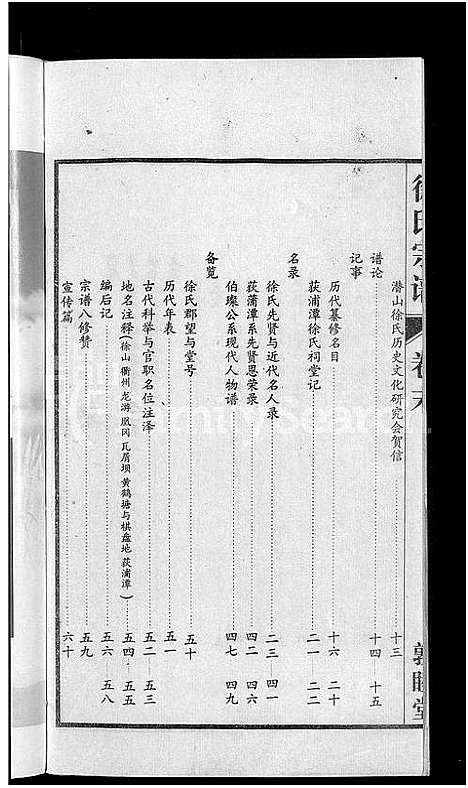 徐氏宗谱 卷末
敦睦堂
潜山徐氏历史文化研究会贺信 十三
谱论 十四 十五
记事
历代纂修名目 十六 二十
荻浦潭徐氏祠堂记 二一 二二
名录
徐氏先贤与近代名人录 二三 四一
荻蒲潭系先贤恩荣录 四二 四六
伯璨公系现代人物谱 四七 四九
备览
徐氏郡望与堂号 五十
历代年表 五一
古代科举与官职名位注泽 五二 五三
地名注释(徐山 衢州 龙游 凰冈 瓦屑坝 黄鹤塘与棋盘地 荻浦潭) 五四 五五
编后记 五六 五八
宗谱八修赞 五九
宣传篇 六十